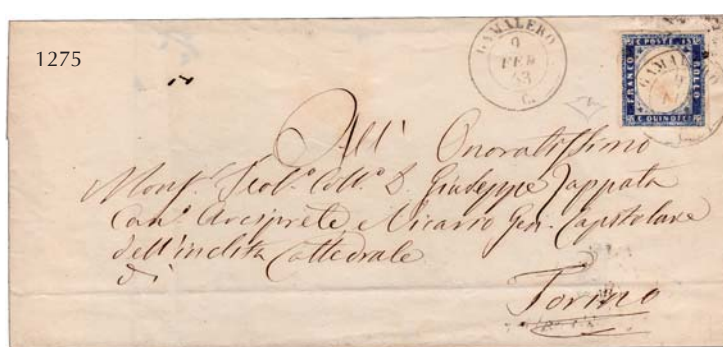 1275
GAMALERO
9
FEB
63
C.
C. POSTE 15
FRANCO
BOLLO
C. QUINDICI
GAMALERO
9
All' Onoratissimo
Mons.r Teol.o Coll.o D. Giuseppe Zappata
Can.o Arciprete e Vicario Gen. Capitolare
dell'inclita Cattedrale
di
Torino